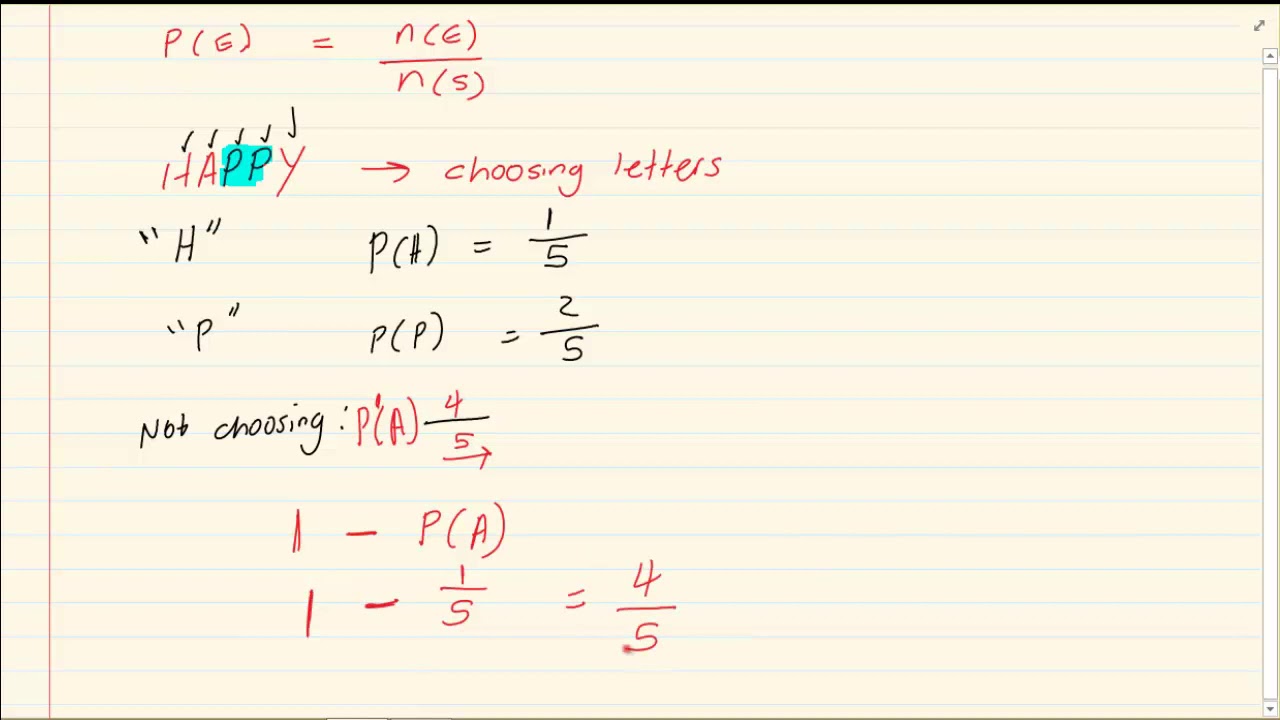 P(E) = n(E)/n(S)
HAPPY → choosing letters
"H" P(H) = 1/5
"P" P(P) = 2/5
Not choosing: P'(A) 4/5
1 - P(A)
1 - 1/5 = 4/5